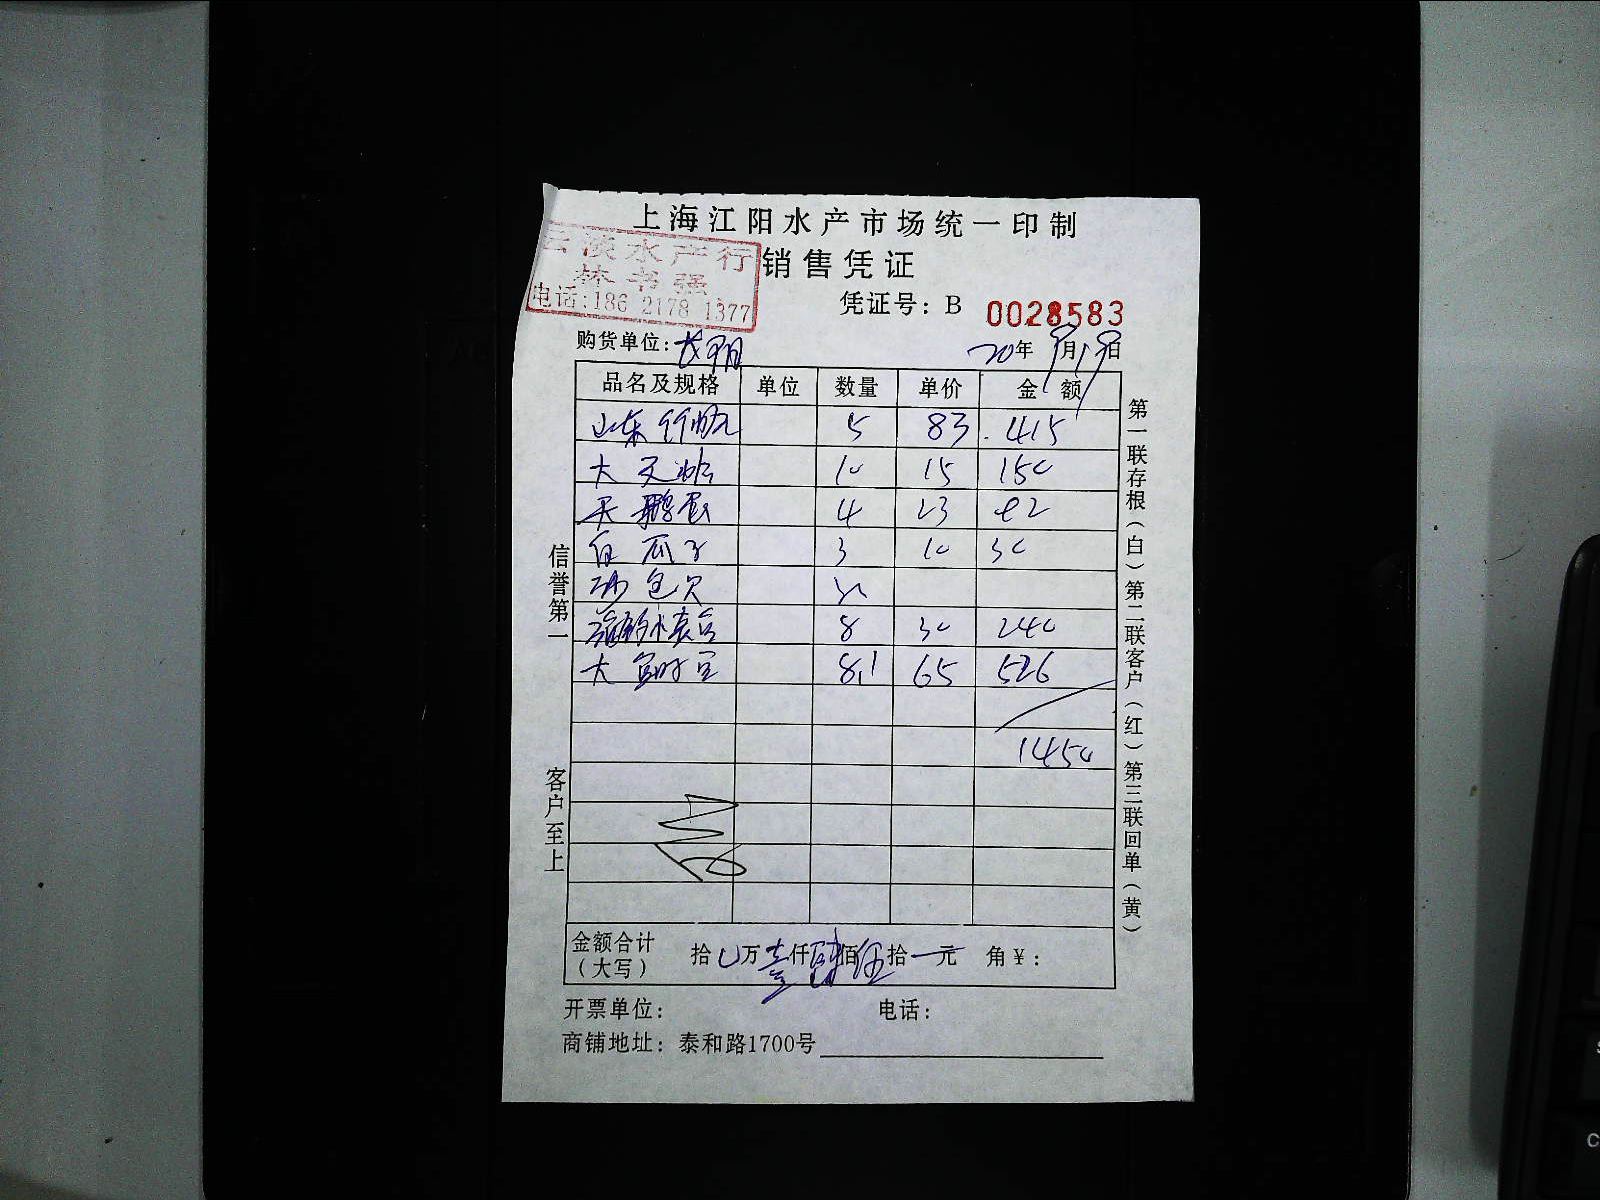 上海江阳水产市场统一印制
水产行
销售凭证
林书强
电话:186 2178 1377
凭证号：B 0028583
购货单位：
20年9月19日
品名及规格 单位 数量 单价 金额
山东 5 83 415
大 10 15 150
天鹅蛋 4 23 92
白瓜子 3 10 30
8 30 240
大 8.1 65 526
1450
信誉第一
客户至上
第一联存根（白）第二联客户（红）第三联回单（黄）
金额合计（大写） 拾 万壹仟肆佰伍拾 元 角￥：
开票单位： 电话：
商铺地址：泰和路1700号